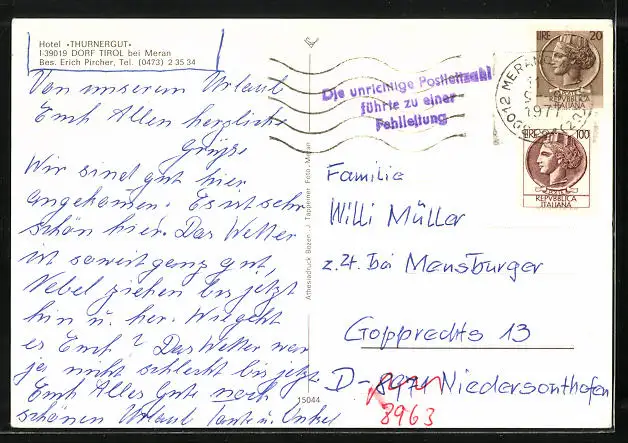 Hotel «THURNERGUT»
I-39019 DORF TIROL bei Meran
Bes. Erich Pircher, Tel. (0473) 2 35 34
Von unserem Urlaub
Euch Allen herzliche
Grüße
Wir sind gut hier
angekommen. Es ist sehr
schön hier. Das Wetter
ist soweit ganz gut,
Nebel ziehen bis jetzt
hin u. her. Wie geht
es Euch? Das Wetter war
ja nicht schlecht bis jetzt
Euch Alles Gute noch
schönen Urlaub Tante u. Onkel
15044
Die unrichtige Postleitzahl
führte zu einer
Fehlleitung
MERANO
1977
LIRE 20
REPVBBLICA
ITALIANA
LIRE 100
REPVBBLICA
ITALIANA
Familie
Willi Müller
z.Zt. bei Mensburger
Gopprechts 13
D-8971 Niedersonthofen
8963